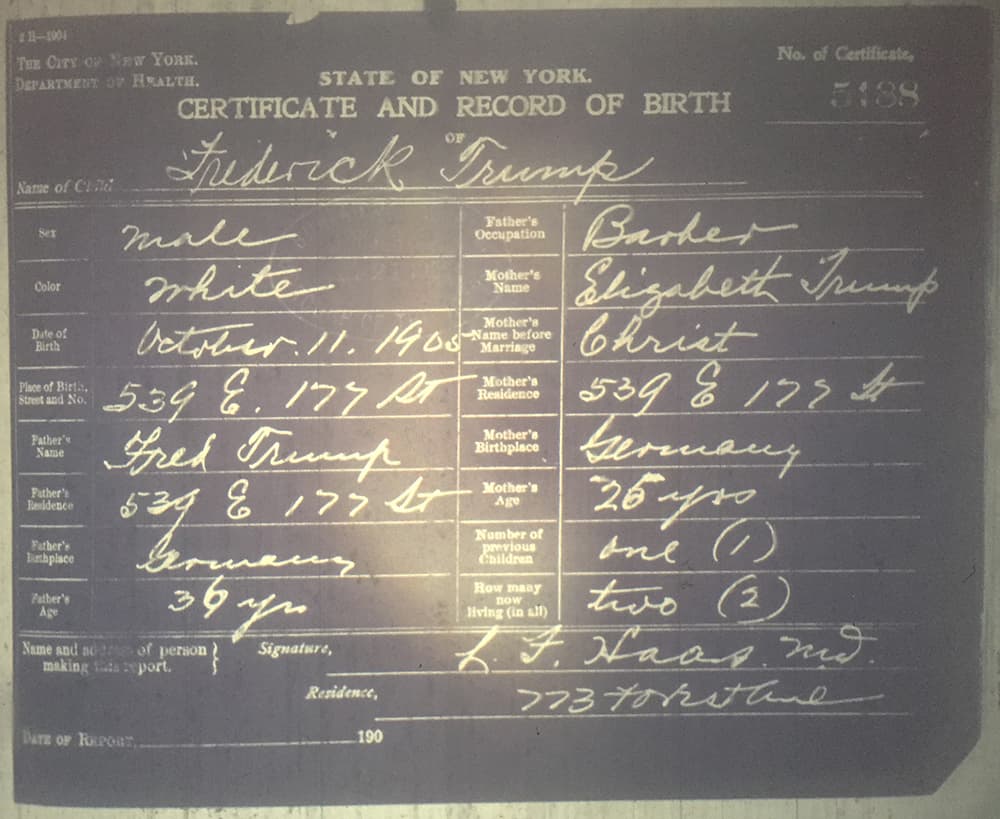 2 H—1904
THE CITY OF NEW YORK.
DEPARTMENT OF HEALTH.
No. of Certificate,
5188
STATE OF NEW YORK.
CERTIFICATE AND RECORD OF BIRTH
OF
Name of Child Frederick Trump
Sex male
Father's Occupation Barber
Color white
Mother's Name Elizabeth Trump
Date of Birth October. 11. 1905
Mother's Name before Marriage Christ
Place of Birth, Street and No. 539 E. 177 St
Mother's Residence 539 E 177 St
Father's Name Fred Trump
Mother's Birthplace Germany
Father's Residence 539 E 177 St
Mother's Age 25 yrs
Father's Birthplace Germany
Number of previous Children one (1)
Father's Age 36 yrs
How many now living (in all) two (2)
Name and address of person making this report.
Signature, L. F. Haas. MD.
Residence, 773 Forest Ave
DATE OF REPORT, 190